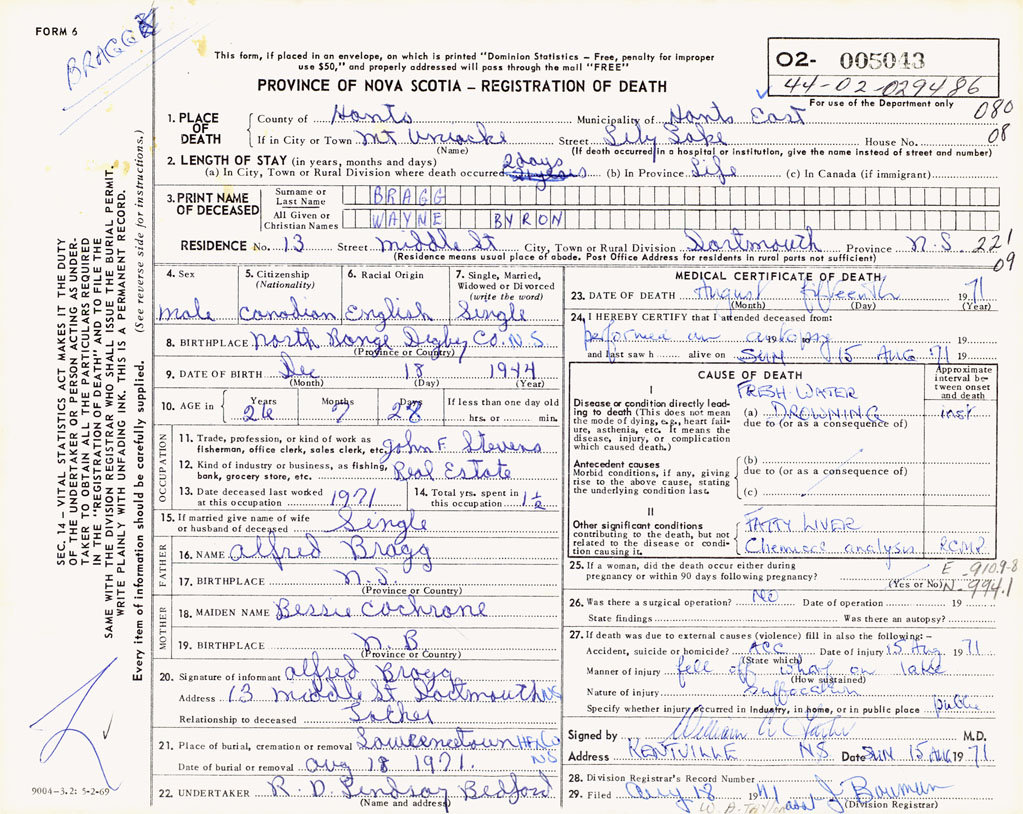 FORM 6
BRAGG
This form, if placed in an envelope, on which is printed "Dominion Statistics – Free, penalty for improper
use $50," and properly addressed will pass through the mail "FREE"
PROVINCE OF NOVA SCOTIA – REGISTRATION OF DEATH
02- 005043
44-02-029486
For use of the Department only
080
08
1. PLACE OF DEATH
County of Hants Municipality of Hants East
If in City or Town Mt Uniacke Street Lily Lake House No.
(Name) (If death occurred in a hospital or institution, give the name instead of street and number)
2. LENGTH OF STAY (in years, months and days)
(a) In City, Town or Rural Division where death occurred 2 days (b) In Province Life (c) In Canada (if immigrant)
3. PRINT NAME OF DECEASED
Surname or Last Name BRAGG
All Given or Christian Names WAYNE BYRON
RESIDENCE No. 13 Street Middle St City, Town or Rural Division Dartmouth Province N.S. 221
(Residence means usual place of abode. Post Office Address for residents in rural parts not sufficient)
09
4. Sex
Male
5. Citizenship (Nationality)
Canadian
6. Racial Origin
English
7. Single, Married, Widowed or Divorced (write the word)
Single
8. BIRTHPLACE North Range Digby Co. N.S.
(Province or Country)
9. DATE OF BIRTH Dec 18 1944
(Month) (Day) (Year)
10. AGE in Years 26 Months 7 Days 28 If less than one day old hrs. or min.
OCCUPATION
11. Trade, profession, or kind of work as fisherman, office clerk, sales clerk, etc. John F. Stevens
12. Kind of industry or business, as fishing, bank, grocery store, etc. Real Estate
13. Date deceased last worked at this occupation 1971
14. Total yrs. spent in this occupation 1½
15. If married give name of wife or husband of deceased Single
FATHER
16. NAME Alfred Bragg
17. BIRTHPLACE N.S.
(Province or Country)
MOTHER
18. MAIDEN NAME Bessie Cochrone
19. BIRTHPLACE N.B
(Province or Country)
20. Signature of informant Alfred Bragg
Address 13 Middle St Dartmouth NS
Relationship to deceased Father
21. Place of burial, cremation or removal HFX Co NS
Date of burial or removal Aug 18 1971.
22. UNDERTAKER R. D. Lindsay Bedford
(Name and address)
MEDICAL CERTIFICATE OF DEATH
23. DATE OF DEATH August fifteenth 1971
(Month) (Day) (Year)
24. I HEREBY CERTIFY that I attended deceased from:
performed an autopsy
and last saw h alive on SUN 15 AUG 71 19
CAUSE OF DEATH
Approximate interval between onset and death
I
Disease or condition directly leading to death (This does not mean the mode of dying, e.g., heart failure, asthenia, etc. It means the disease, injury, or complication which caused death.)
FRESH WATER
(a) DROWNING inst
due to (or as a consequence of)
Antecedent causes
Morbid conditions, if any, giving rise to the above cause, stating the underlying condition last.
(b)
due to (or as a consequence of)
(c)
II
Other significant conditions contributing to the death, but not related to the disease or condition causing it.
FATTY LIVER
Chemical analysis RCMP
25. If a woman, did the death occur either during pregnancy or within 90 days following pregnancy?
(Yes or No)
E-910.9-8
N-994.1
26. Was there a surgical operation? NO Date of operation 19
State findings Was there an autopsy?
27. If death was due to external causes (violence) fill in also the following: –
Accident, suicide or homicide? ACC Date of injury 15 Aug 1971
(State which)
Manner of injury fell off wharf on lake
(How sustained)
Nature of injury suffocation
Specify whether injury occurred in Industry, in home, or in public place public
Signed by William M.D.
Address KENTVILLE NS Date SUN 15 AUG 1971
28. Division Registrar's Record Number
29. Filed Aug 18 1971 J Bowman
(Division Registrar)
SEC. 14 – VITAL STATISTICS ACT MAKES IT THE DUTY
OF THE UNDERTAKER OR PERSON ACTING AS UNDER-
TAKER TO OBTAIN ALL THE PARTICULARS REQUIRED
IN THE "REGISTRATION OF DEATH" AND TO FILE THE
SAME WITH THE DIVISION REGISTRAR WHO SHALL ISSUE THE BURIAL PERMIT.
WRITE PLAINLY WITH UNFADING INK. THIS IS A PERMANENT RECORD.
Every item of information should be carefully supplied. (See reverse side for instructions.)
9004-3.2: 5-2-69